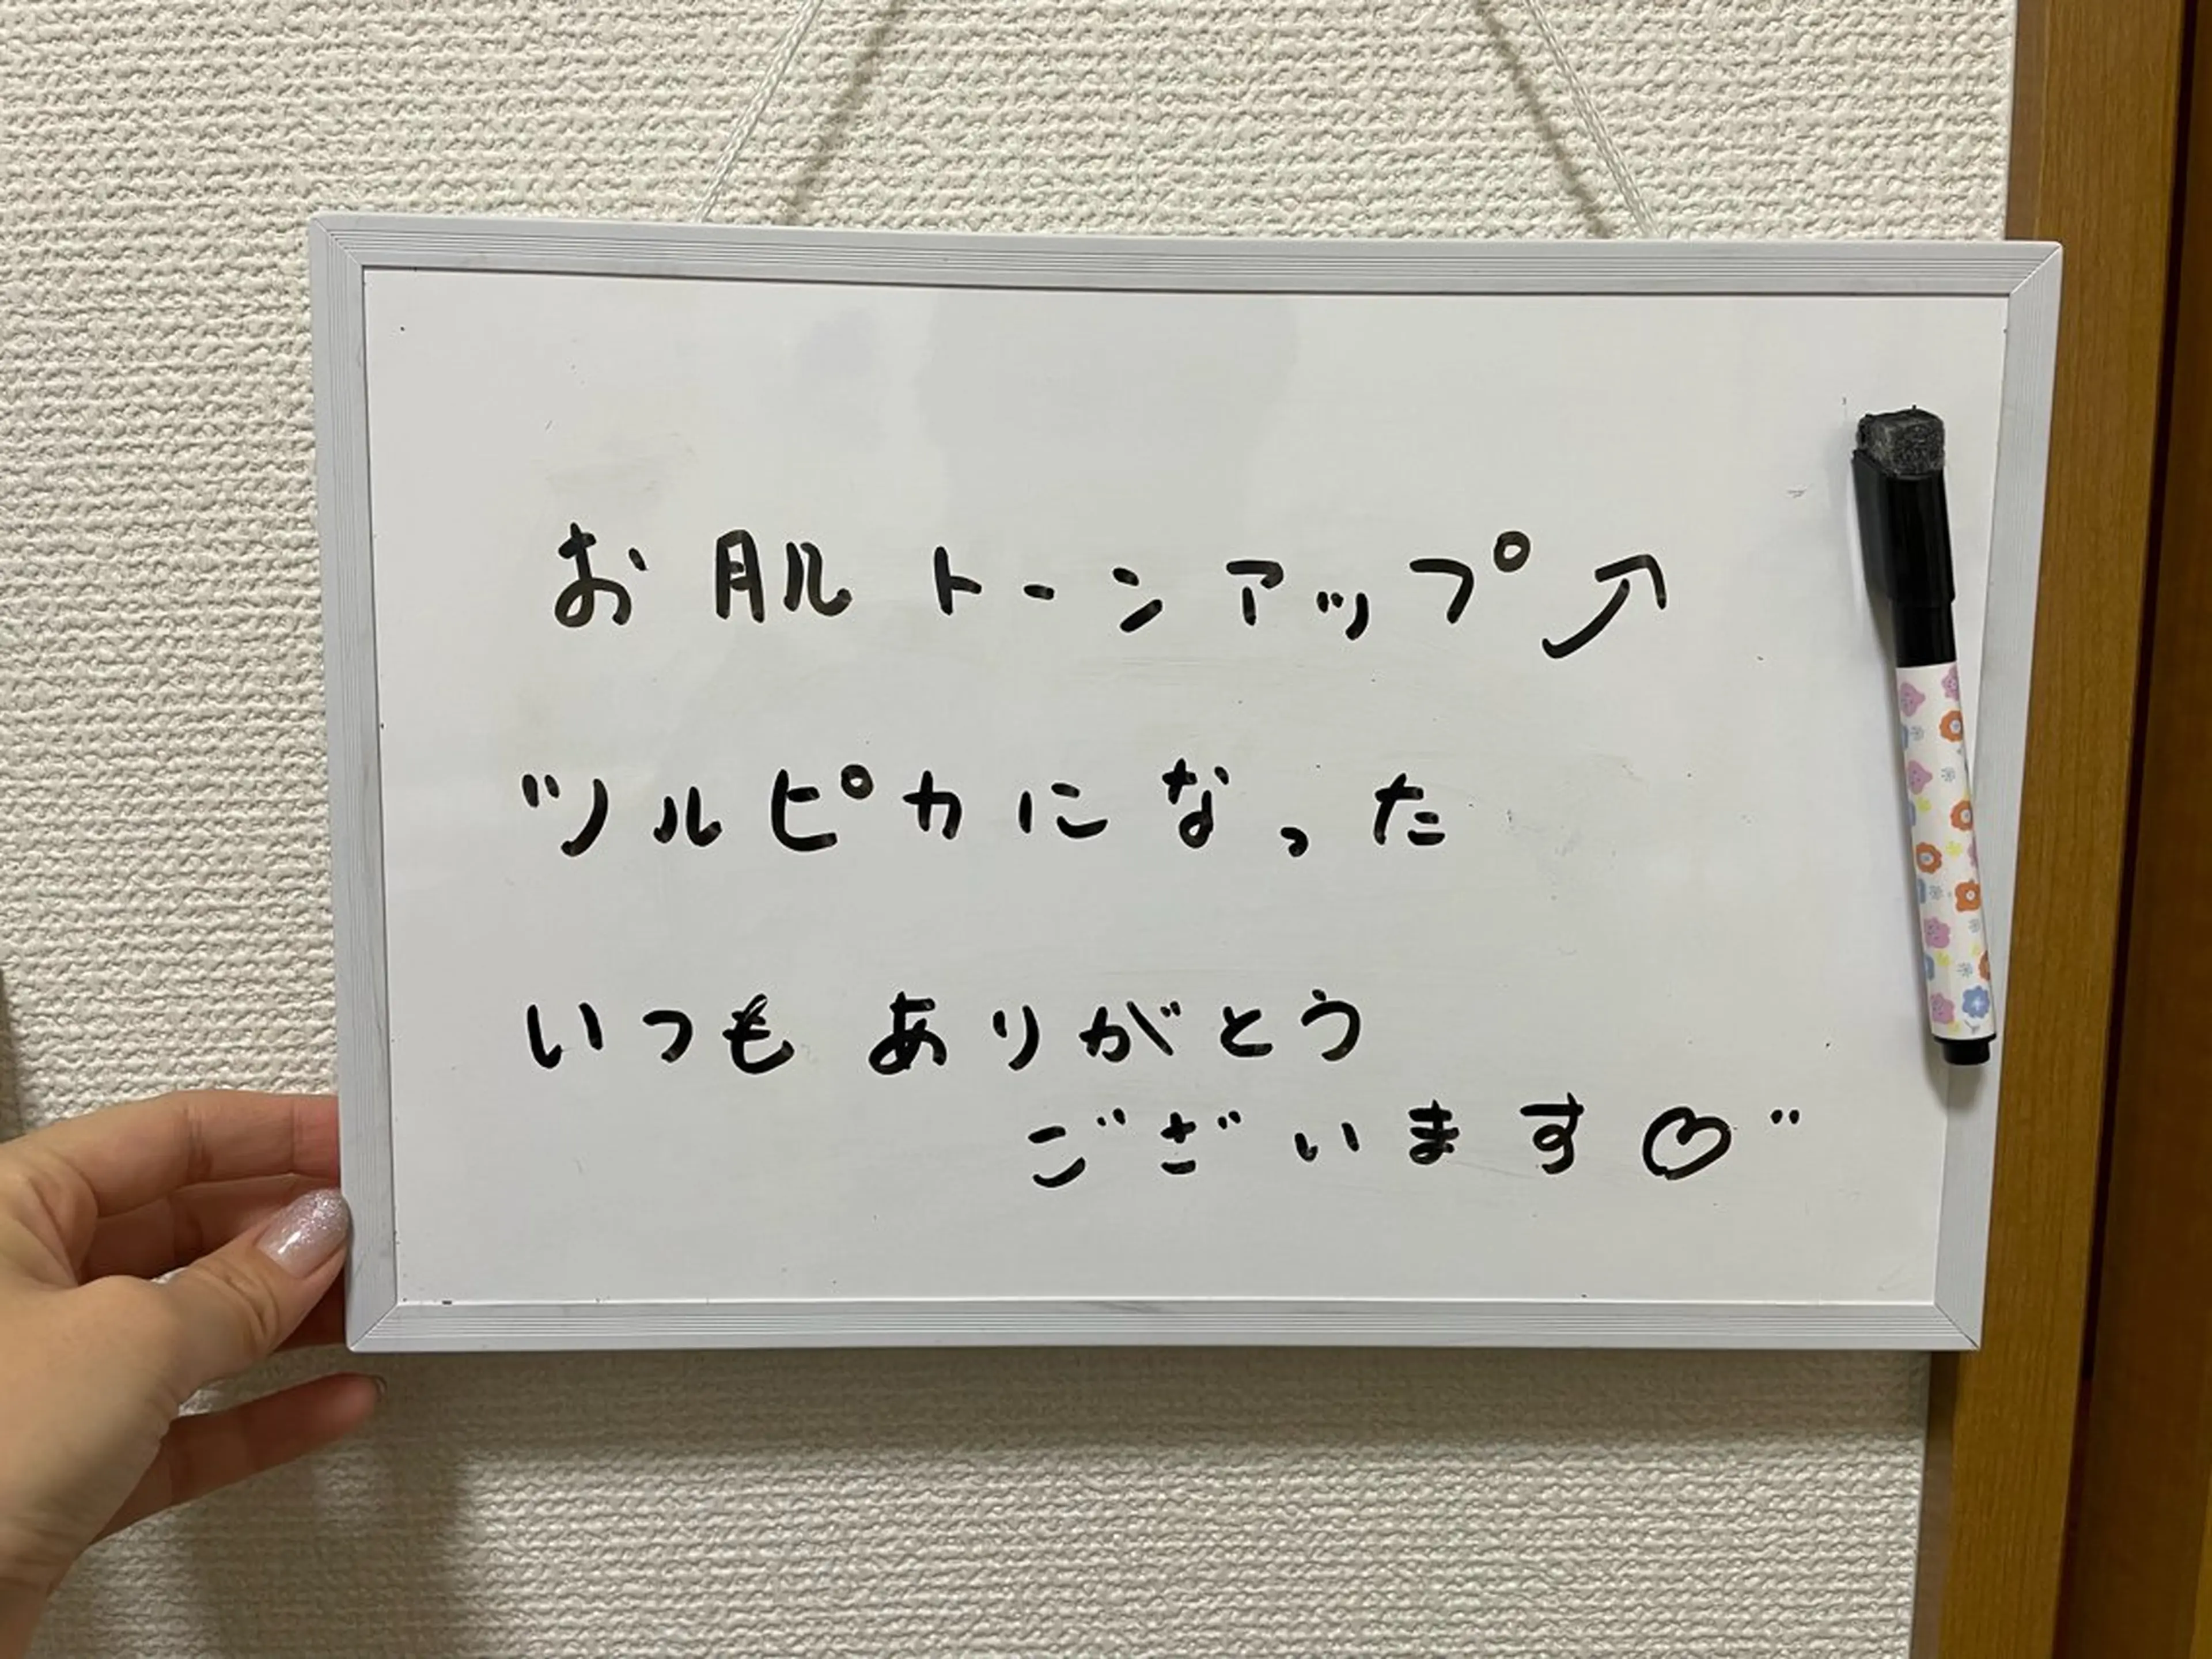 お肌トーンアップ⤴
ツルピカになった
いつもありがとう
ございます♡"